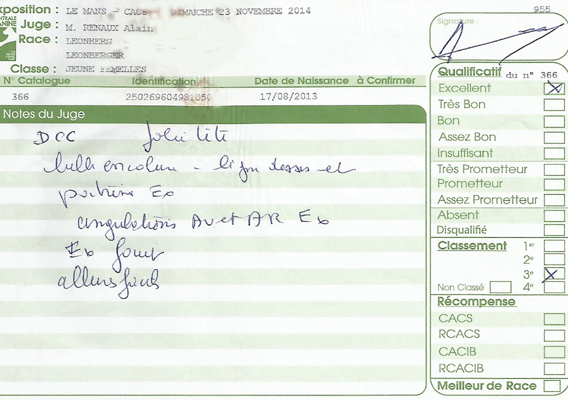 Exposition : LE MANS - CACS DIMAICHE 23 NOVEMBRE 2014
955
Juge : M. RENAUX Alain
Signature :
CENTRALE CANINE
Race : LEONBERG
LEONBERGER
Classe : JEUNE FEMELLES
N° Catalogue Identification Date de Naissance à Confirmer
366 250269604981050 17/08/2013
Notes du Juge
DCC Jolie tête
belle encolure - ligne dessus et
poitrine Ex
angulations AV et AR Ex
Ex fouet
Qualificatif du n° 366
Excellent
Très Bon
Bon
Assez Bon
Insuffisant
Très Prometteur
Prometteur
Assez Prometteur
Absent
Disqualifié
Classement 1er
2e
3e
Non Classé 4e
Récompense
CACS
RCACS
CACIB
RCACIB
Meilleur de Race